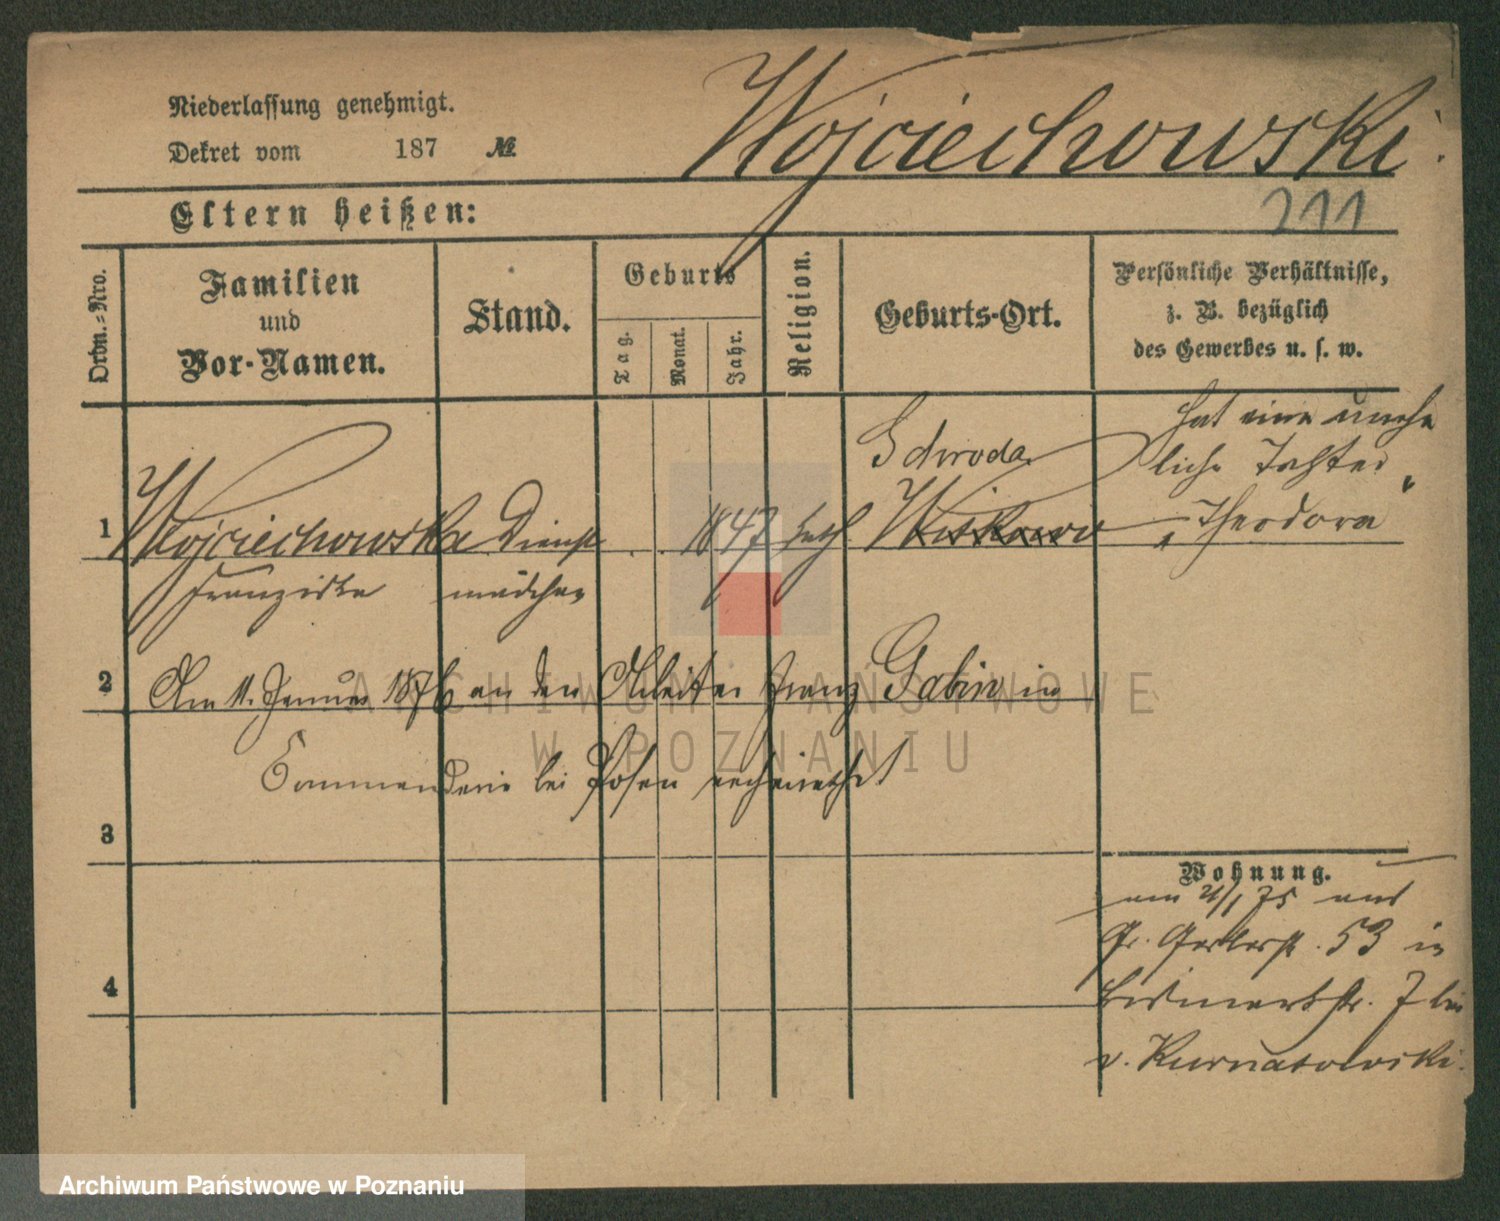 Niederlassung genehmigt.
Dekret vom 187 №
Wojciechowski
211
Eltern heißen:
Ordn.-Nro.
Familien
und
Vor-Namen.
Stand.
Geburts
Tag.
Monat.
Jahr.
Religion.
Geburts-Ort.
Persönliche Verhältnisse,
z. B. bezüglich
des Gewerbes u. s. w.
hat eine unehe
liche Tochter
„Theodora“
Schroda
1 Wojciechowska Dienst 1847 kath. Wiskowo
Franziska mädchen
2 Am 11. Januar 1876 an den Arbeiter Franz Gabin in
Commenderie bei Posen verheirathet
3
Wohnung.
am 2/1 75 aus
Gr. Gerberstr. 53 in
4 Bismarkstr. 7 bei
v. Kurnatowski.
ARCHIWUM PAŃSTWOWE
W POZNANIU
Archiwum Państwowe w Poznaniu